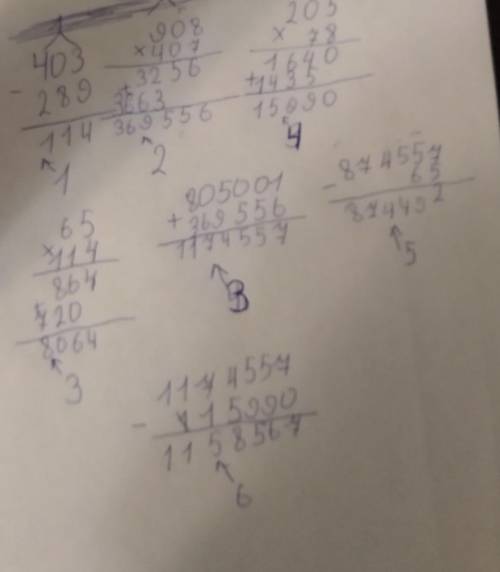 403
- 289
114
1
908
× 407
3256
+ 3663
369556
2
205
× 78
1640
+ 1435
15990
4
65
× 114
864
720
8064
3
805001
+ 369556
1174557
3
874557
- 65
874492
5
1174557
- 15990
1158567
6